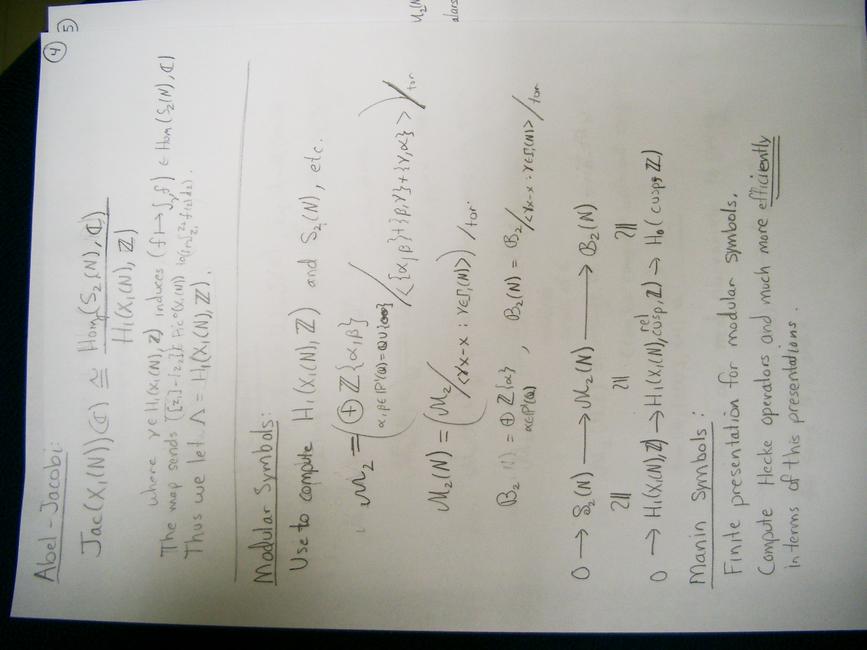 ④
⑤
Abel-Jacobi:
Jac(X₁(N))(ℂ) ≅ Hom(S₂(N), ℂ)
H₁(X₁(N), ℤ)
where γ∈H₁(X₁(N), ℤ) induces (f ↦ ∫_γ f) ∈ Hom(S₂(N), ℂ)
The map sends
Thus we let Λ = H₁(X₁(N), ℤ).
Modular Symbols:
Use to compute H₁(X₁(N), ℤ) and S₂(N), etc.
M₂ = (⊕ ℤ{α,β} / <{α,β}+{β,γ}+{γ,α}>) / tor
α,β∈ℙ¹(ℚ)=ℚ∪{∞}
M₂(N) = (M₂/<γx-x : γ∈Γ₁(N)>) /tor
B₂ = ⊕ ℤ{α}, B₂(N) = B₂/<γx-x : γ∈Γ₁(N)>/tor
α∈ℙ¹(ℚ)
0 → S₂(N) → M₂(N) → B₂(N)
≅ ≅ ≅
0 → H₁(X₁(N), ℤ) → H₁^rel(X₁(N), cusp, ℤ) → H₀(cusps, ℤ)
Manin Symbols:
Finite presentation for modular symbols.
Compute Hecke operators and much more efficiently
in terms of this presentations.